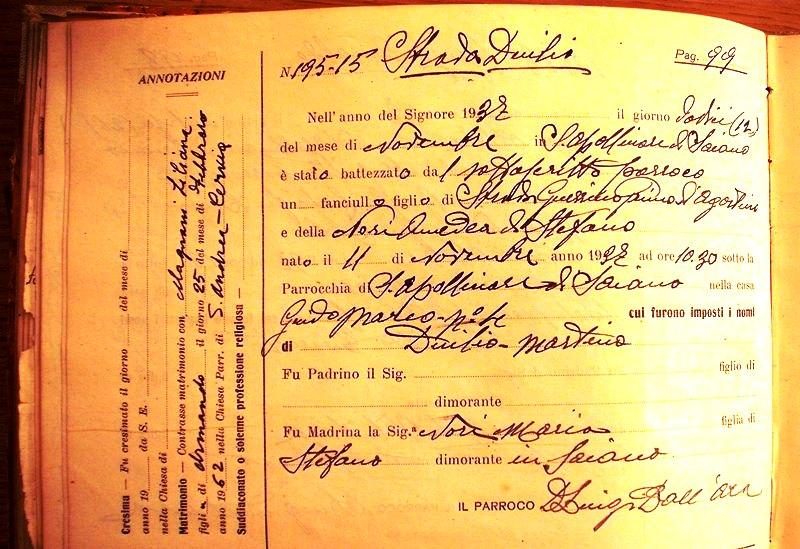 ANNOTAZIONI
Cresima – Fu cresimato il giorno del mese di
anno 19 da S. E.
nella Chiesa di
Matrimonio – Contrasse matrimonio con Magnani Liliana
figlia di Armando il giorno 25 del mese di Febbraio
anno 1962 nella Chiesa Parr. di S. Andrea - Cervia
Suddiaconato o solenne professione religiosa –
N. 195-15 Strada Duilio Pag. 99
Nell'anno del Signore 1937 il giorno dodici (12)
del mese di Novembre in S. Apollinare di Saiano
è stato battezzato da l sottoscritto parroco
un fanciullo figlio di Strada d'Agostino
e della Neri Amedea di Stefano
nato il 11 di Novembre anno 1937 ad ore 10.30 sotto la
Parrocchia di S. Apollinare di Saiano nella casa
Guido Marco - N° 4 cui furono imposti i nomi
di Duilio - Martino
Fu Padrino il Sig. figlio di
dimorante
Fu Madrina la Sig.a Neri Maria figlia di
Stefano dimorante in Saiano
IL PARROCO D. Luigi Dall'Ara